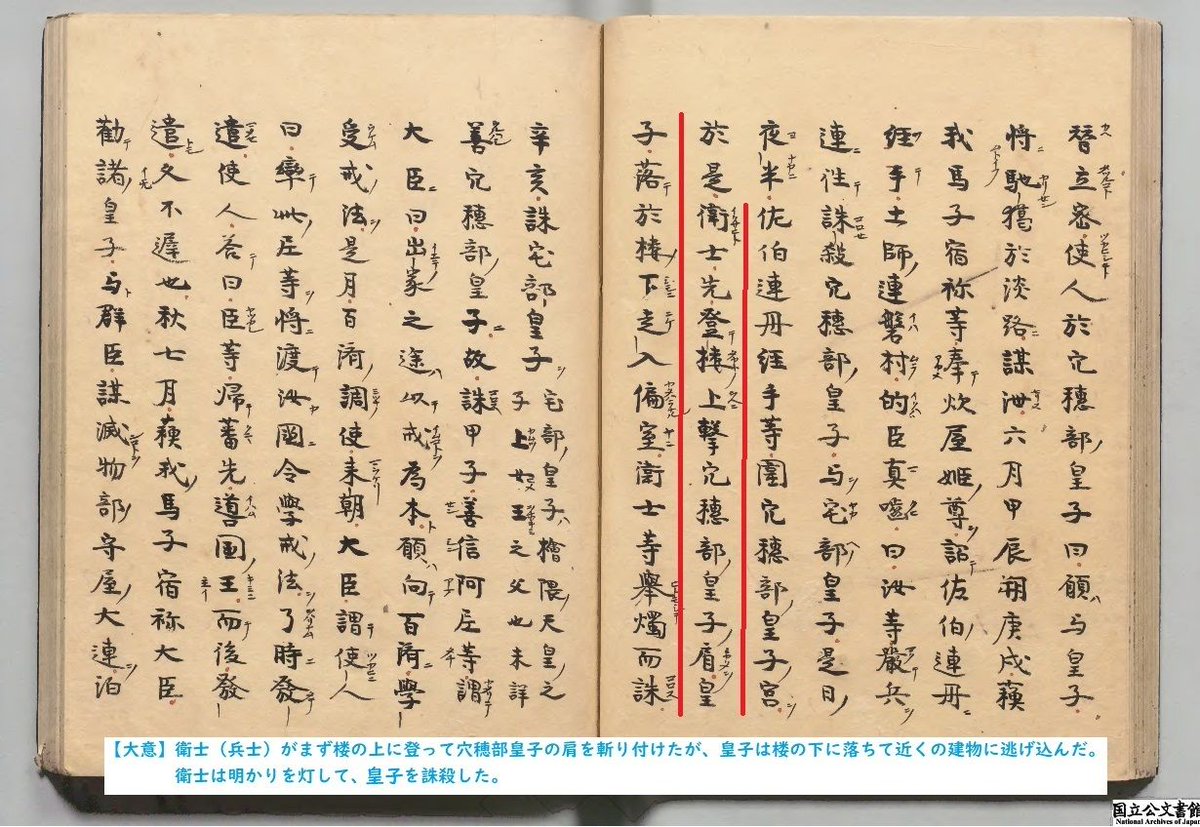 替立密使人於穴穂部皇子曰願与皇子
将馳獦於淡路謀泄六月甲辰朔庚戌蘓
我馬子宿祢等奉炊屋姫尊詔佐伯連丹
経手土師連磐村的臣真噛曰汝等嚴兵
連往誅殺穴穂部皇子与宅部皇子是日
夜半佐伯連丹経手等圍穴穂部皇子宮
於是衛士先登楼上撃穴穂部皇子肩皇
子落於楼下走入偏室衛士等舉燭而誅
辛亥誅宅部皇子
宅部皇子檜隈天皇之
子上女王之父也未詳
善穴穂部皇子故誅甲子善信阿尼等謂
大臣曰出家之途以戒為本願向百済學
受戒法是月百済調使来朝大臣謂使人
曰率此尼等将渡汝國令學戒法了時發
遣使人答曰臣等帰蕃先噵國王而後發
遣久不遅也秋七月蘓我馬子宿祢大臣
勧諸皇子与群臣謀滅物部守屋大連泊
【大意】衛士（兵士）がまず楼の上に登って穴穂部皇子の肩を斬り付けたが、皇子は楼の下に落ちて近くの建物に逃げ込んだ。
衛士は明かりを灯して、皇子を誅殺した。
国立公文書館
National Archives of Japan